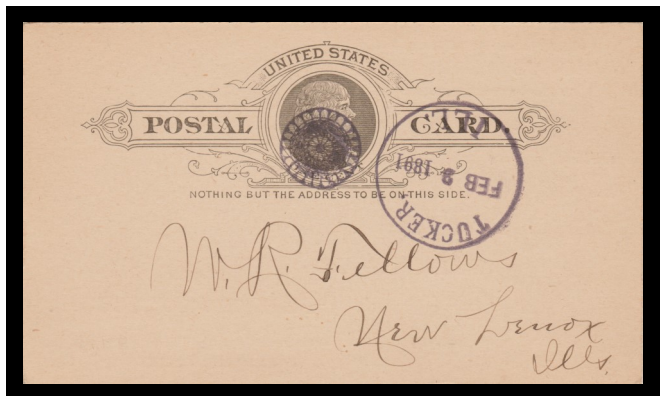 UNITED STATES
POSTAL CARD.
NOTHING BUT THE ADDRESS TO BE ON THIS SIDE.
TUCKER
FEB 9 1891
ILL.
W. R. Fellows
New Lenox
Ills.